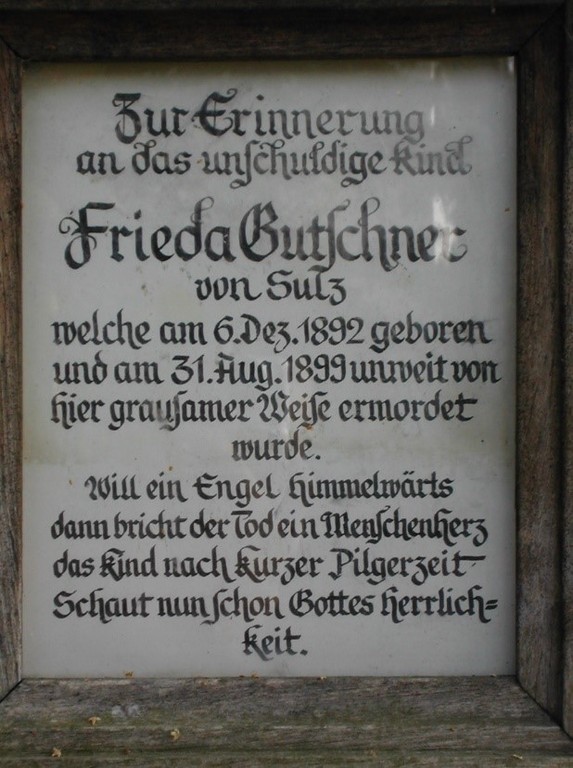 Zur Erinnerung
an das unschuldige Kind
Frieda Gutschner
von Sulz
welche am 6. Dez. 1892 geboren
und am 31. Aug. 1899 unweit von
hier grausamer Weise ermordet
wurde.
Will ein Engel himmelwärts
dann bricht der Tod ein Menschenherz
das Kind nach kurzer Pilgerzeit
Schaut nun schon Gottes Herrlich=
keit.